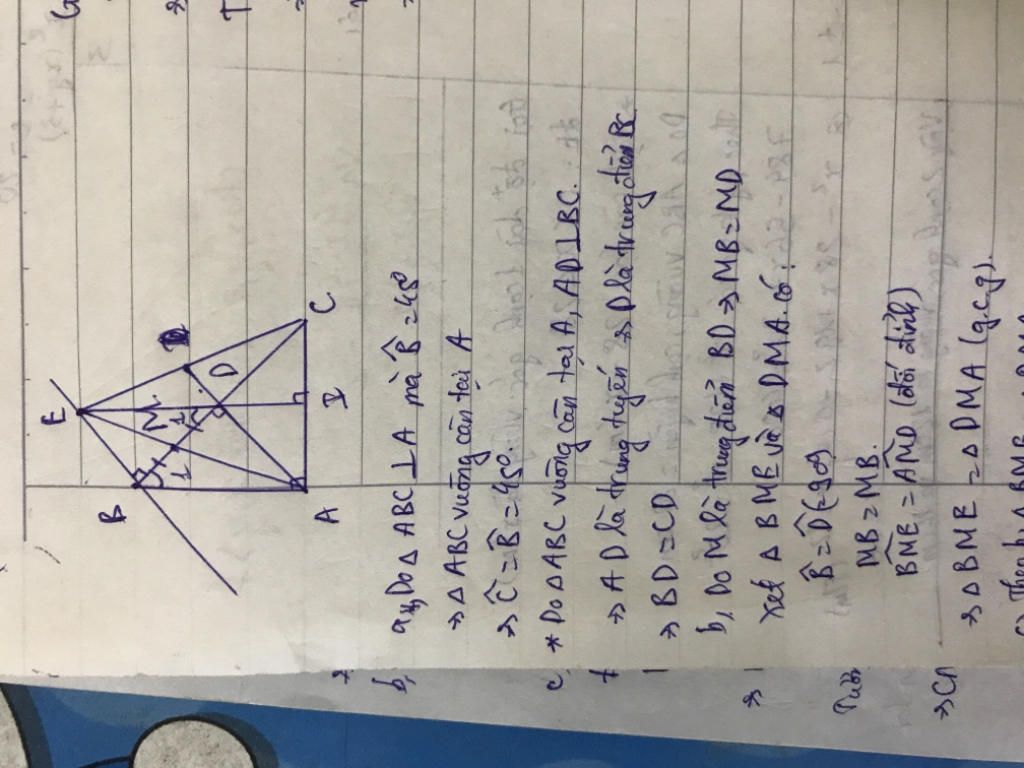 E
B
M
D
A
I
C
a, Do △ABC ⊥ A mà B̂ = 45°
⇒ △ABC vuông cân tại A
⇒ Ĉ = B̂ = 45°.
* Do △ABC vuông cân tại A, AD ⊥ BC.
⇒ AD là trung tuyến ⇒ D là trung điểm BC
⇒ BD = CD
b, Do M là trung điểm BD ⇒ MB = MD
Xét △BME và △DMA có:
B̂ = D̂ (=90°)
MB = MB.
BM̂E = AM̂D (đối đỉnh)
⇒ △BME = △DMA (g.c.g).
c) Theo b, △BME = △DMA